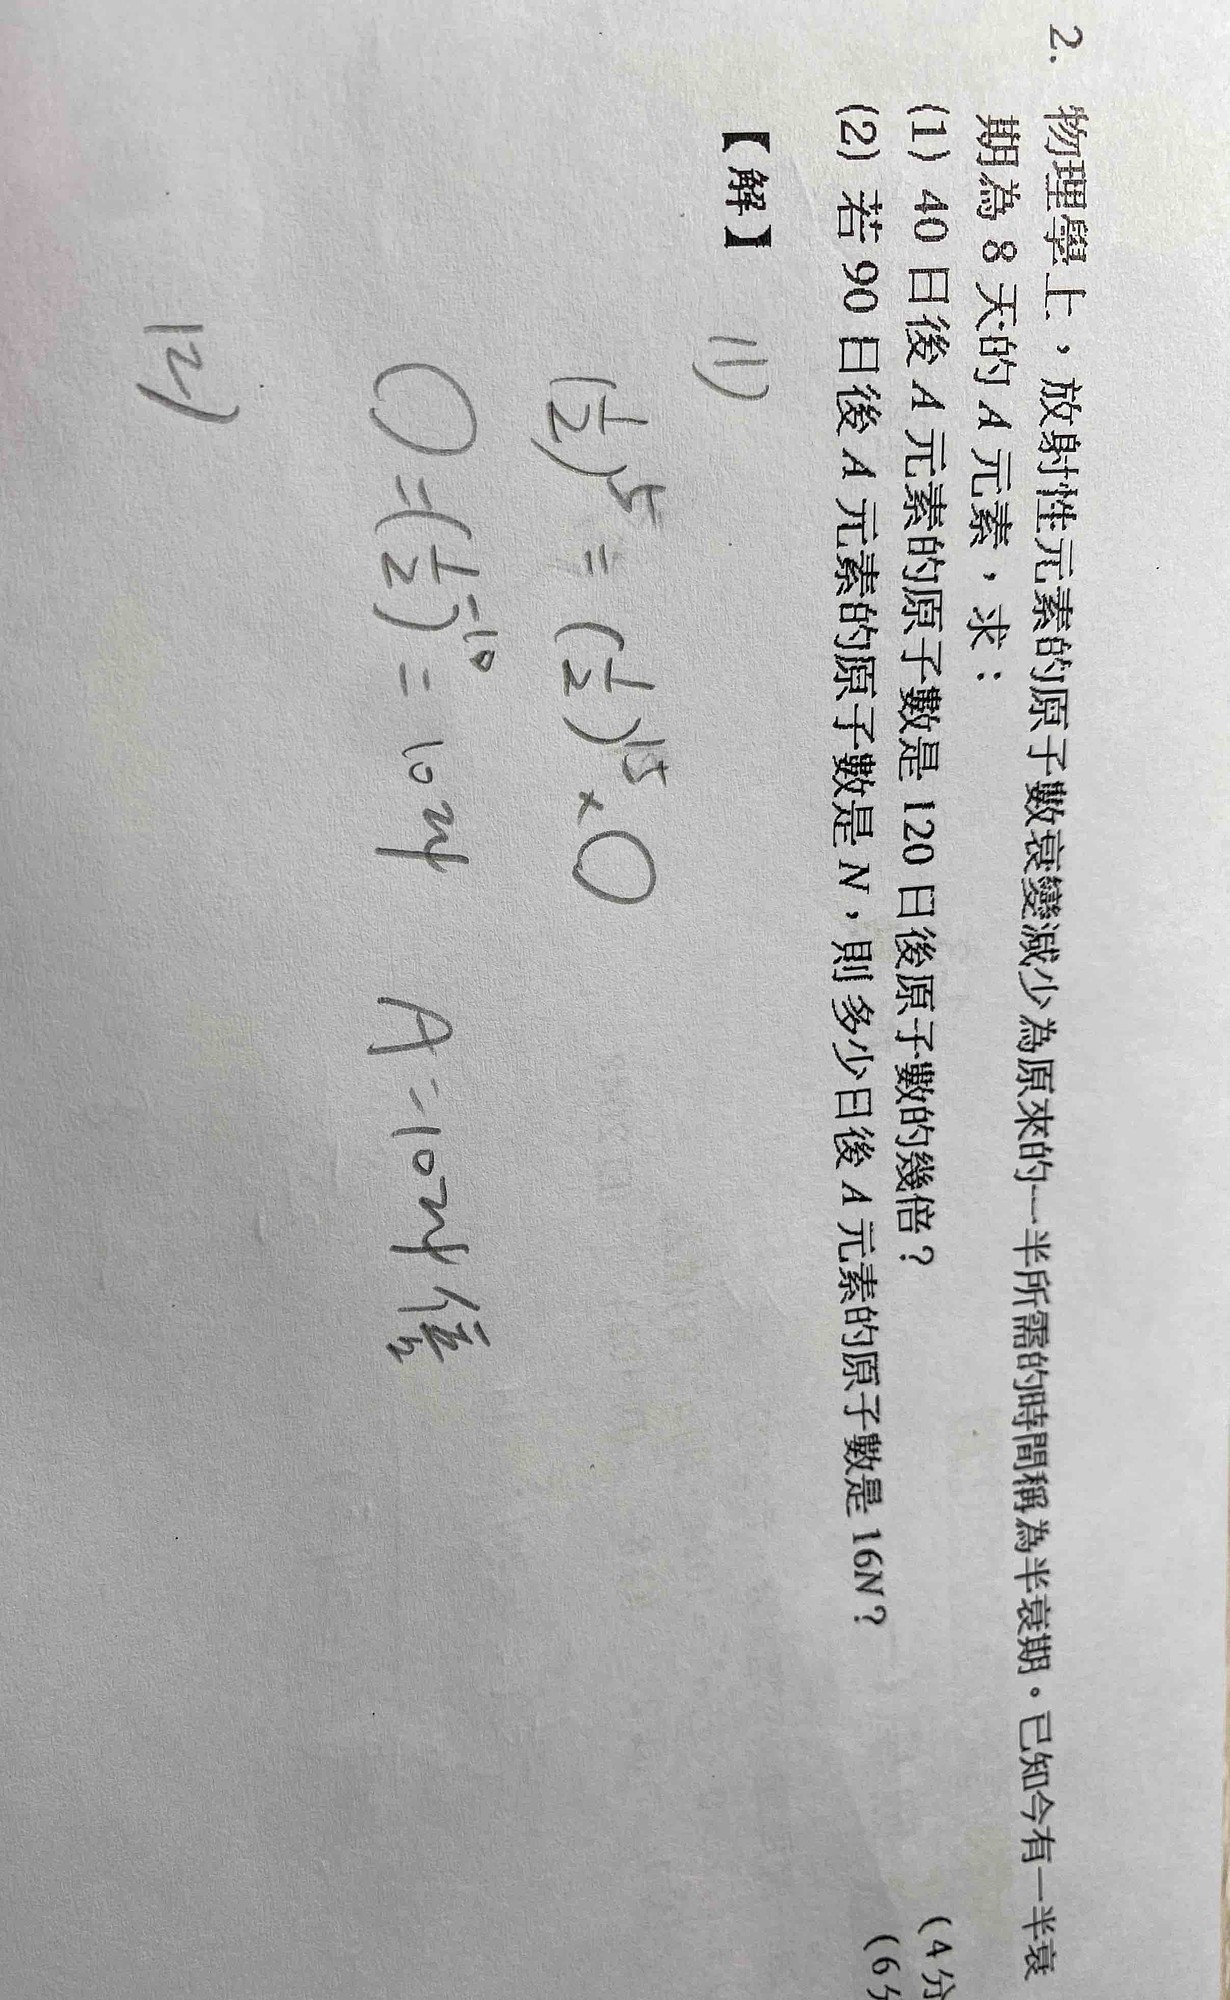 2. 物理學上，放射性元素的原子數衰變減少為原來的一半所需的時間稱為半衰期。已知今有一半衰
期為 8 天的 A 元素，求：
(1) 40 日後 A 元素的原子數是 120 日後原子數的幾倍？ (4分
(2) 若 90 日後 A 元素的原子數是 N，則多少日後 A 元素的原子數是 16N？ (6分
【解】
(1)
(1/2)^5 = (1/2)^15 × O
O = (1/2)^-10 = 1024 A = 1024倍
(2)